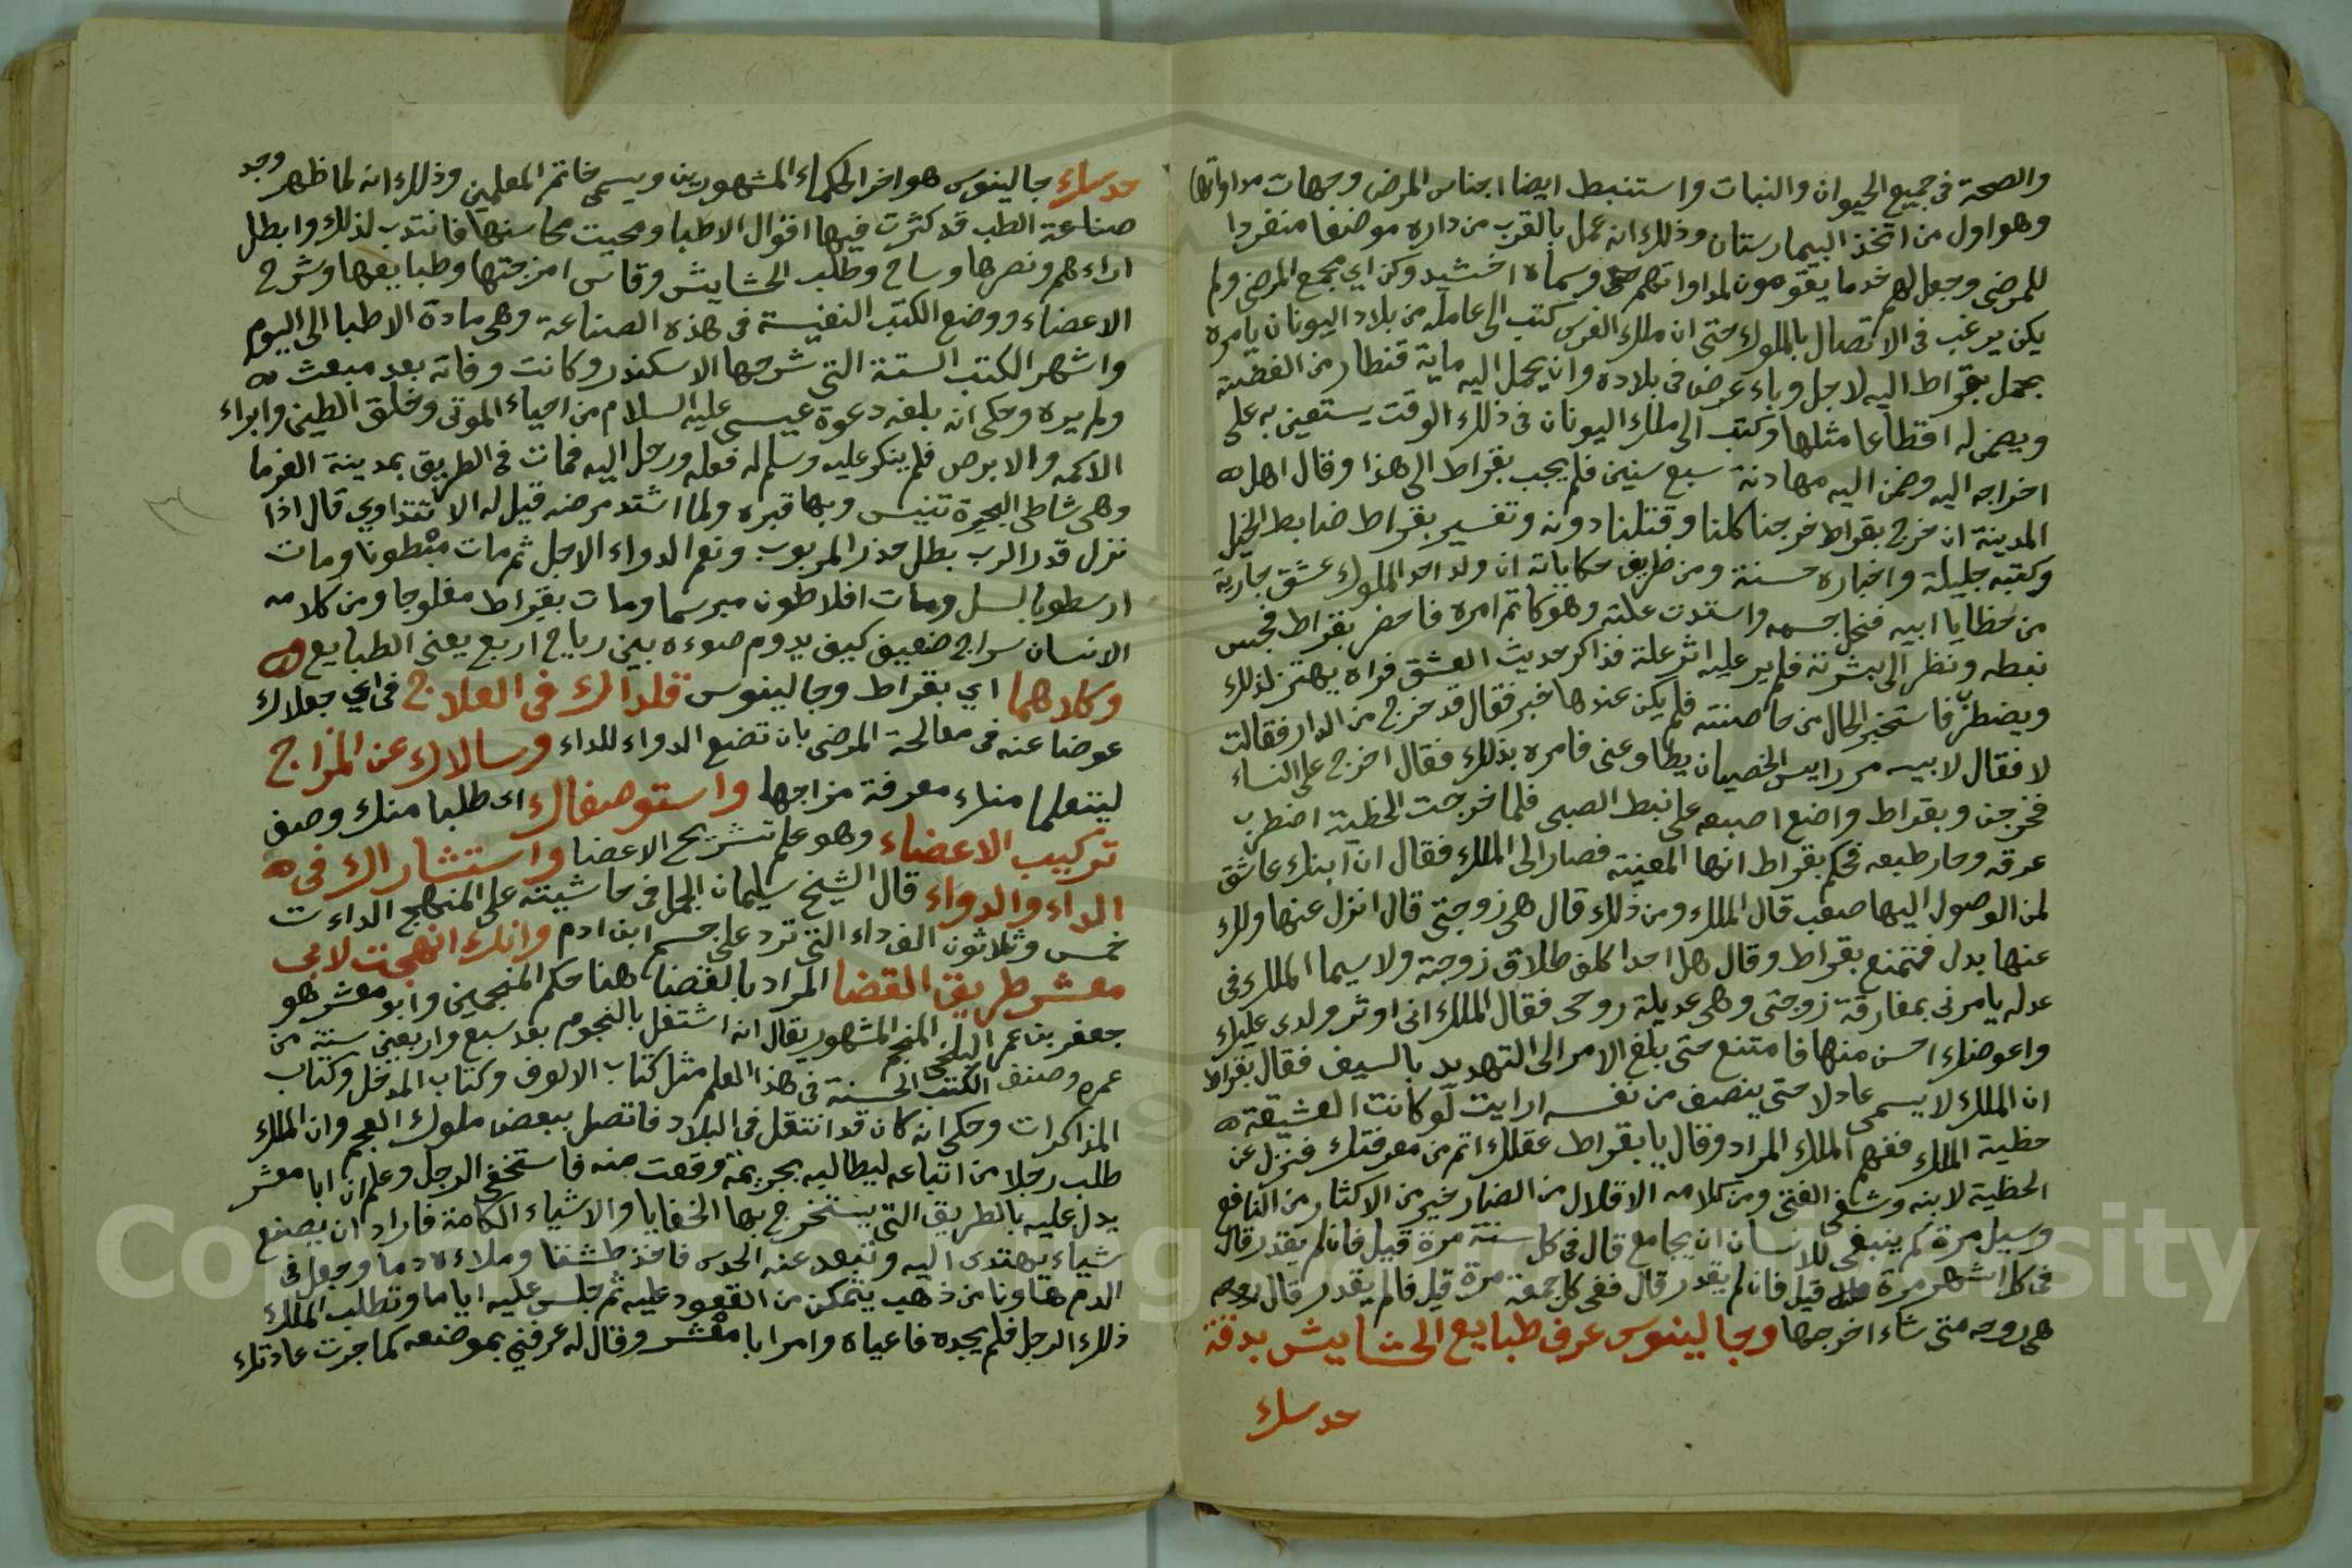 والصحة في جميع الحيوان والنبات واستنبط ايضا اجناس المرض وجهات مداواتها
وهو اول من اتخذ البيمارستان وذلك انه عمل بالقرب من داره موضعا منفردا
للمرضى وجعل لهم خدما يقومون لمداواتهم وسماه اخشيدوكن اي مجمع المرضى ولم
يكن يرغب في الاتصال بالملوك حتى ان ملك الفرس كتب الى عامله من بلاد اليونان يامره
بحمل بقراط اليه لاجل وباء عرض في بلاده وان يحمل اليه ماية قنطار من الفضة
ويضمن له اقطاعا مثلها وكتب الى ملك اليونان في ذلك الوقت يستعين به على
اخراجه اليه وضمن اليه مهادنة سبع سنين فلم يجب بقراط الى هذا وقال اهل
المدينة ان خرج بقراط خرجنا كلنا وقتلنا دونه وتفسير بقراط ضابط الخيل
وكتبه جليلة واخباره حسنة ومن ظريف حكاياته ان ولد احد الملوك عشق جارية
من حظايا ابيه فنحل جسمه واشتدت علته وهو كاتم امره فاحضر بقراط فجس
نبطه ونظر الى بشرته فلم ير عليه اثر علة فذاكر حديث العشق فراه يهتز لذلك
ويضطرب فاستخبر الحال من حاضنته فلم يكن عندها خبر فقال قد خرج من الدار فقالت
لا فقال لابيه مر رايس الخصيان يطاوعني فامره بذلك فقال اخرج علي النساء
فخرجن وبقراط واضع اصبعه على نبط الصبي فلما خرجت الحظية اضطرب
عرقه وحار طبعه فحكم بقراط انها المعينة فصار الى الملك فقال ان ابنك عاشق
لمن الوصول اليها صعب قال الملك ومن ذلك قال هي زوجتي قال انزل عنها ولك
عنها بدل فتمنع بقراط وقال هل احدا كلف طلاق زوجته ولا سيما الملك في
عدله يامرني بمفارقة زوجتي وهي عديلة روحي فقال الملك اني اوثر ولدي عليك
واعوضك احسن منها فامتنع حتى بلغ الامر الى التهديد بالسيف فقال بقراط
ان الملك لا يسمى عادلا حتى ينصف من نفسه ارايت لو كانت العشيقة
حظية الملك ففهم الملك المراد وقال يا بقراط عقلك اتم من معرفتك فنزل عن
الحظية لابنه وشفي الفتى ومن كلامه الاقلال من الضار خير من الاكثار من النافع
وسيل مرة كم ينبغي للانسان ان يجامع قال في كل سنة مرة قيل فان لم يقدر قال
في كل اشهر مرة قيل فان لم يقدر قال ففي كل جمعة مرة قيل فالم يقدر قال
هي روحه متى شاء اخرجها وجالينوس عرف طبايع الحشايش بدقة
حدسك
حدسك جالينوس هو اخر الحكماء المشهورين ويسمى خاتم المعلمين وذلك انه لما ظهر وجد
صناعة الطب قد كثرت فيها اقوال الاطبا ومحيت محاسنها فانتدب لذلك وابطل
اراءهم ونصرها وساح وطلب الحشايش وقاس امزجتها وطبايعها وشرح
الاعضاء ووضع الكتب النفيسة في هذه الصناعة وهي مادة الاطبا الى اليوم
واشهر الكتب الستة التي شرحها الاسكندر وكانت وفاته بعد مبعث
ولم يره وحكي انه بلغه دعوة عيسى عليه السلام من احياء الموتى وخلق الطين وابراء
الاكمه والابرص فلم ينكر عليه وسلم له فعله ورحل اليه فمات في الطريق بمدينة الفرما
وهي شاطى البحيرة تنيس وبها قبره ولما اشتد مرضه قيل له الا تتداوي قال اذا
نزل قدر الرب بطل حذر المربوب ونعم الدواء الاجل ثم مات مبطونا ومات
ارسطو بالسل ومات افلاطون مبرسما ومات بقراط مفلوجا ومن كلامه
الانسان سراج ضعيف كيف يدوم ضوءه بين رياح اربع يعني الطبايع
وكلاهما اي بقراط وجالينوس قلداك في العلاج في اي جعلاك
عوضا عنه في معالجة المرضى بان تضع الدواء للداء وسالاك عن المزاج
ليتعلما منك معرفة مزاجها واستوصفاك اى طلبا منك وصف
تركيب الاعضاء وهو علم تشريح الاعضا واستشاراك في
الداء والدواء قال الشيخ سليمان الجمل في حاشيته على المنهج الداءت
خمس وثلاثون الف داء التي ترد على جسم ابن ادم وانك انهجت لابي
معشر طريق القضا المراد بالقضا هنا حكم المنجمين وابو معشر هو
جعفر بن عمر البلخي المنجم المشهور يقال انه اشتغل بالنجوم بعد سبع واربعين سنة من
عمره وصنف الكتب الحسنة في هذا العلم مثل كتاب الالوف وكتاب المدخل وكتاب
المذاكرات وحكي انه كان قد انتقل في البلاد فاتصل ببعض ملوك العجم وان الملك
طلب رجلا من اتباعه ليطالبه بجريمة وقعت منه فاستخفى الرجل وعلم ان ابا معشر
يدل عليه بالطريق التي يستخرج بها الخفايا والاشياء الكامنة فاراد ان يصنع
شياء يهتدى اليه وتبعد عنه الحدس فاخذ طشتا وملاءه دما وجعل في
الدم هاونا من ذهب يتمكن من القعود عليه ثم جلس عليه اياما وتطلب الملك
ذلك الرجل فلم يجده فاعياه وامر ابا معشر وقال له عرفني بموضعه كما جرت عادتك
Copyright © King Saud University